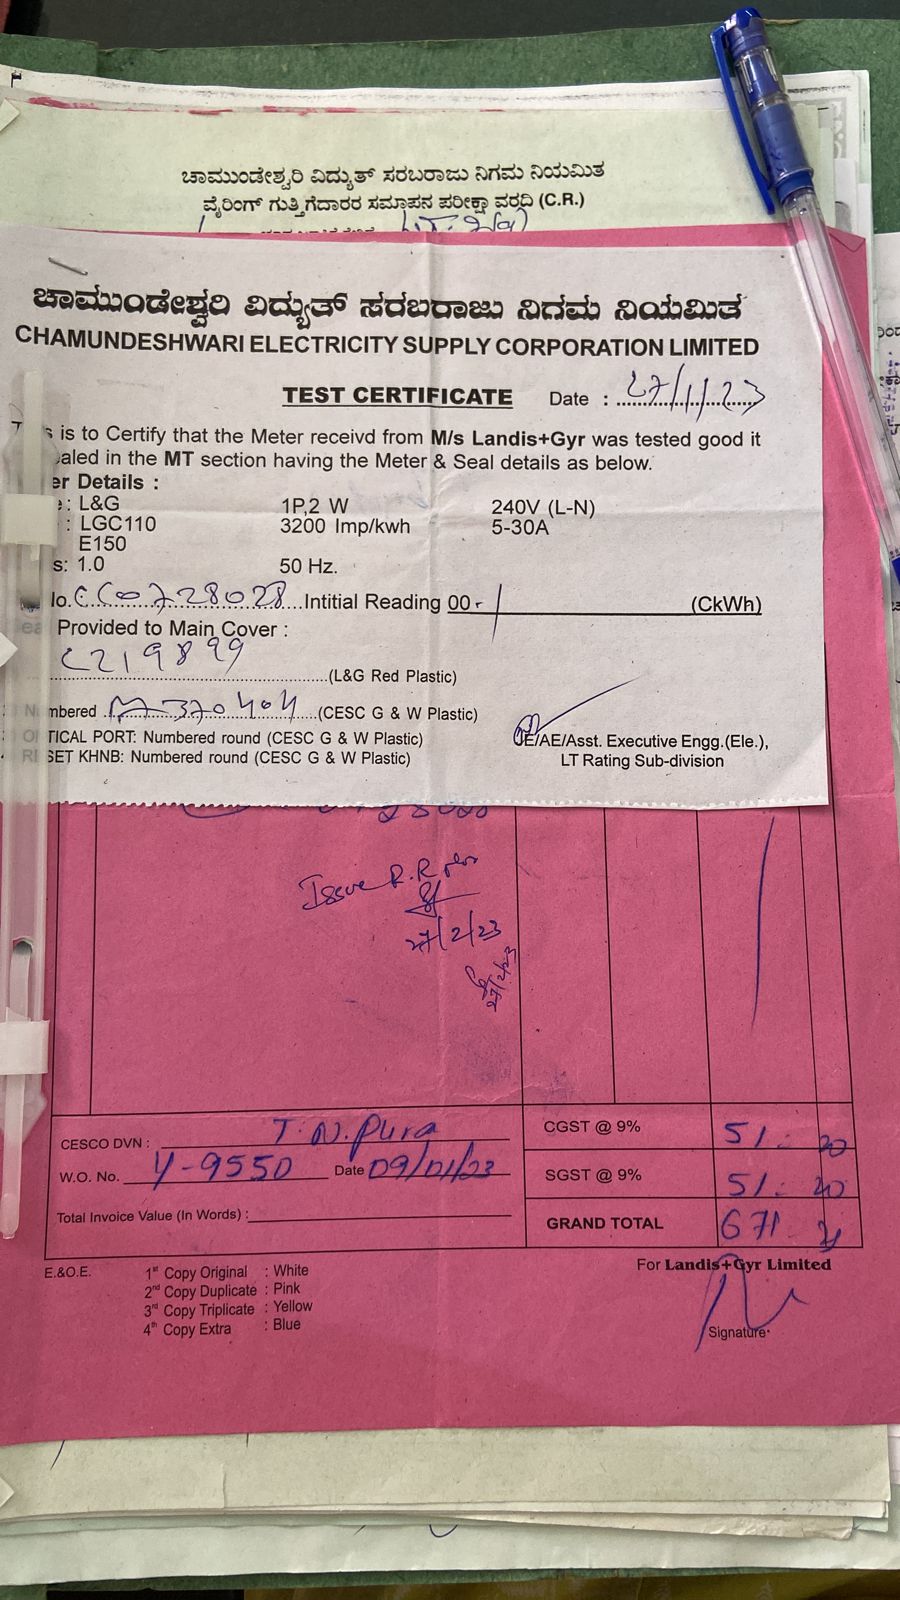 ಚಾಮುಂಡೇಶ್ವರಿ ವಿದ್ಯುತ್ ಸರಬರಾಜು ನಿಗಮ ನಿಯಮಿತ
ವೈರಿಂಗ್ ಗುತ್ತಿಗೆದಾರರ ಸಮಾಪನ ಪರೀಕ್ಷಾ ವರದಿ (C.R.)
ಚಾಮುಂಡೇಶ್ವರಿ ವಿದ್ಯುತ್ ಸರಬರಾಜು ನಿಗಮ ನಿಯಮಿತ
CHAMUNDESHWARI ELECTRICITY SUPPLY CORPORATION LIMITED
TEST CERTIFICATE Date : 27/1/23
is to Certify that the Meter receivd from M/s Landis+Gyr was tested good it
ealed in the MT section having the Meter & Seal details as below.
er Details :
: L&G 1P,2 W 240V (L-N)
: LGC110 3200 Imp/kwh 5-30A
E150
s: 1.0 50 Hz.
No. CC0728028 Intitial Reading 00-1 (CkWh)
Provided to Main Cover :
C219899 (L&G Red Plastic)
Numbered M370404 (CESC G & W Plastic)
TICAL PORT: Numbered round (CESC G & W Plastic)
SET KHNB: Numbered round (CESC G & W Plastic)
JE/AE/Asst. Executive Engg.(Ele.),
LT Rating Sub-division
Issue R.R
27/2/23
27/2/23
CESCO DVN : T.N.Pura
W.O. No. Y-9550 Date 09/01/23
Total Invoice Value (In Words) :
CGST @ 9% 51. 20
SGST @ 9% 51. 20
GRAND TOTAL 671
E.&O.E.
1st Copy Original : White
2nd Copy Duplicate : Pink
3rd Copy Triplicate : Yellow
4th Copy Extra : Blue
For Landis+Gyr Limited
Signature